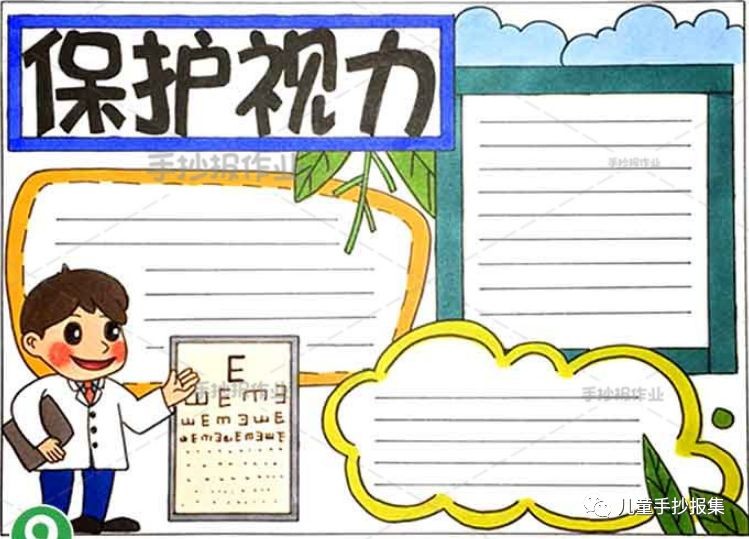 保护视力
手抄报作业
手抄报作业
E
ШEmƎ
ШEmƎШE
手抄报作业
手抄报作业
儿童手抄报集